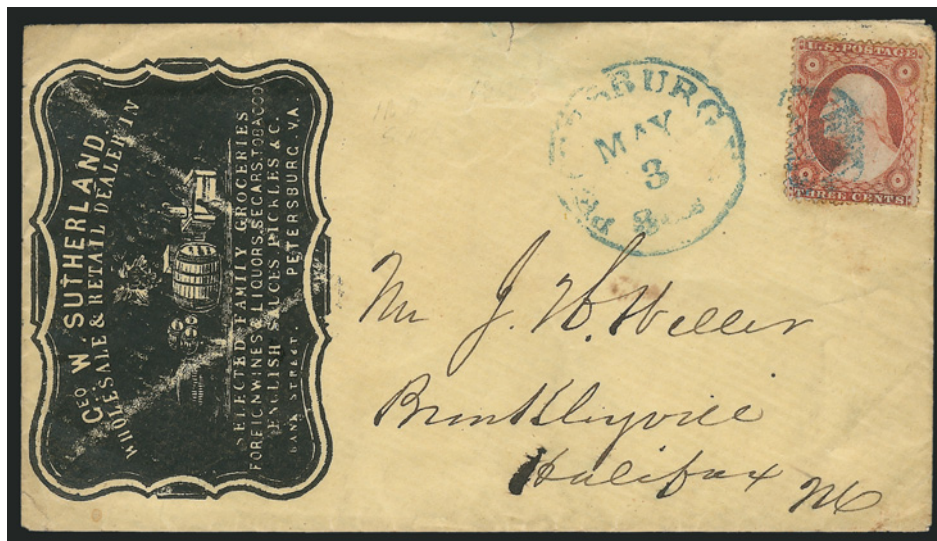 GEO W. SUTHERLAND
WHOLESALE & RETAIL DEALER IN
SELECTED FAMILY GROCERIES
FOREIGN WINES & LIQUORS, SEGARS, TOBACCO
ENGLISH SAUCES PICKLES & C.
BANK STREET PETERSBURG, VA.
PETERSBURG
MAY
3
U.S. POSTAGE
THREE CENTS
Mr J. W. Heller
Brinkleyville
Halifax NC